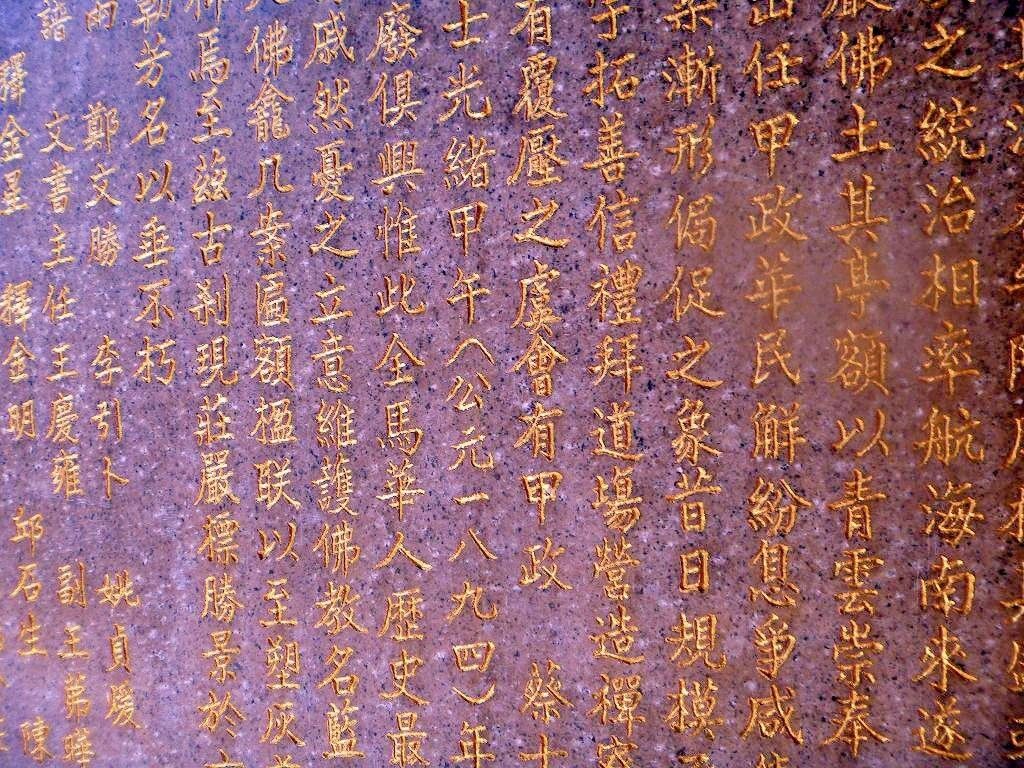 之統治相率航海南來遂
嚴佛土其亭額以青雲崇奉
出任甲政華民解紛息爭咸
漸形侷促之象昔日規模
拓善信禮拜道場營造禪
有覆壓之虞會有甲政 蔡士
士光緒甲午(公元一八九四)年
廢俱興惟此全馬華人歷史最
戚然憂之立意維護佛教名藍
佛龕几案匾額楹联以至塑灰
焉至茲古刹現莊嚴標勝景於
勒芳名以垂不朽
鄭文勝 李引卜 姚貞媛
文書主任王慶雍 副主 弟
釋金星 釋金明 邱石生 陳